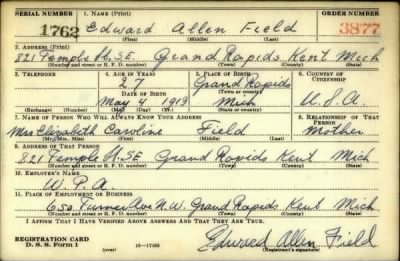 SERIAL NUMBER 1. NAME (Print) ORDER NUMBER
1762 Edward Allen Field 3877
(First) (Middle) (Last)
2. ADDRESS (Print)
821 Temple St. S.E. Grand Rapids Kent Mich
(Number and street or R. F. D. number) (Town) (County) (State)
3. TELEPHONE 4. AGE IN YEARS 5. PLACE OF BIRTH 6. COUNTRY OF CITIZENSHIP
27 Grand Rapids
DATE OF BIRTH (Town or county)
May 4 1913 Mich U.S.A.
(Exchange) (Number) (Mo.) (Day) (Yr.) (State or country)
7. NAME OF PERSON WHO WILL ALWAYS KNOW YOUR ADDRESS 8. RELATIONSHIP OF THAT PERSON
Mrs Elizabeth Caroline Field Mother
(Mr., Mrs., Miss) (First) (Middle) (Last)
9. ADDRESS OF THAT PERSON
821 Temple St. SE Grand Rapids Kent Mich
(Number and street or R. F. D. number) (Town) (County) (State)
10. EMPLOYER'S NAME
W.P.A.
11. PLACE OF EMPLOYMENT OR BUSINESS
650 Turner Ave N.W. Grand Rapids Kent Mich
(Number and street or R. F. D. number) (Town) (County) (State)
I AFFIRM THAT I HAVE VERIFIED ABOVE ANSWERS AND THAT THEY ARE TRUE.
REGISTRATION CARD
D. S. S. Form 1 (over) Edward Allen Field
(Registrant's signature)